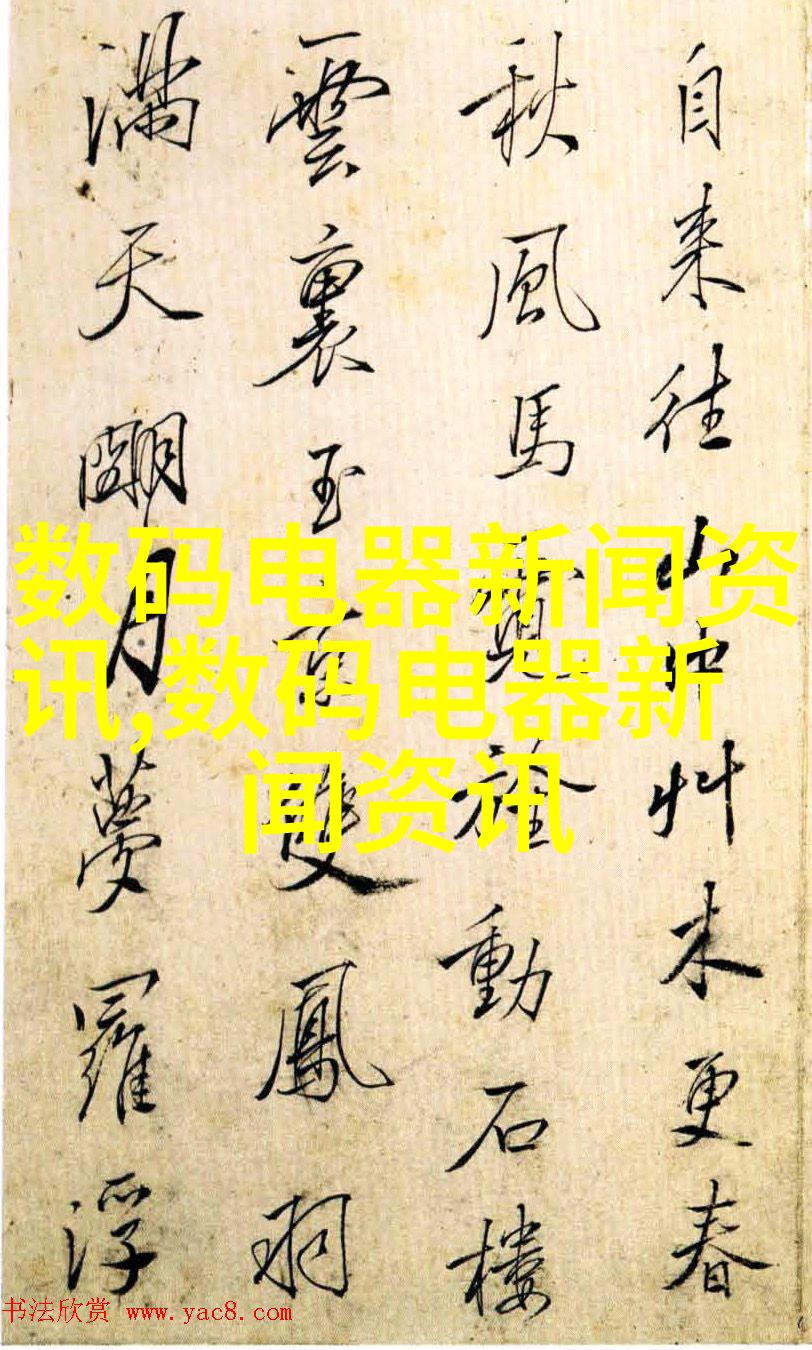 自来往山中艸木更春
秋風馬動石樓
雲裏玉雙鳳羽
滿天朙月夢羅浮
数码电器新闻资
讯,数码电器新
闻资讯
书法欣赏 www.yac8.com